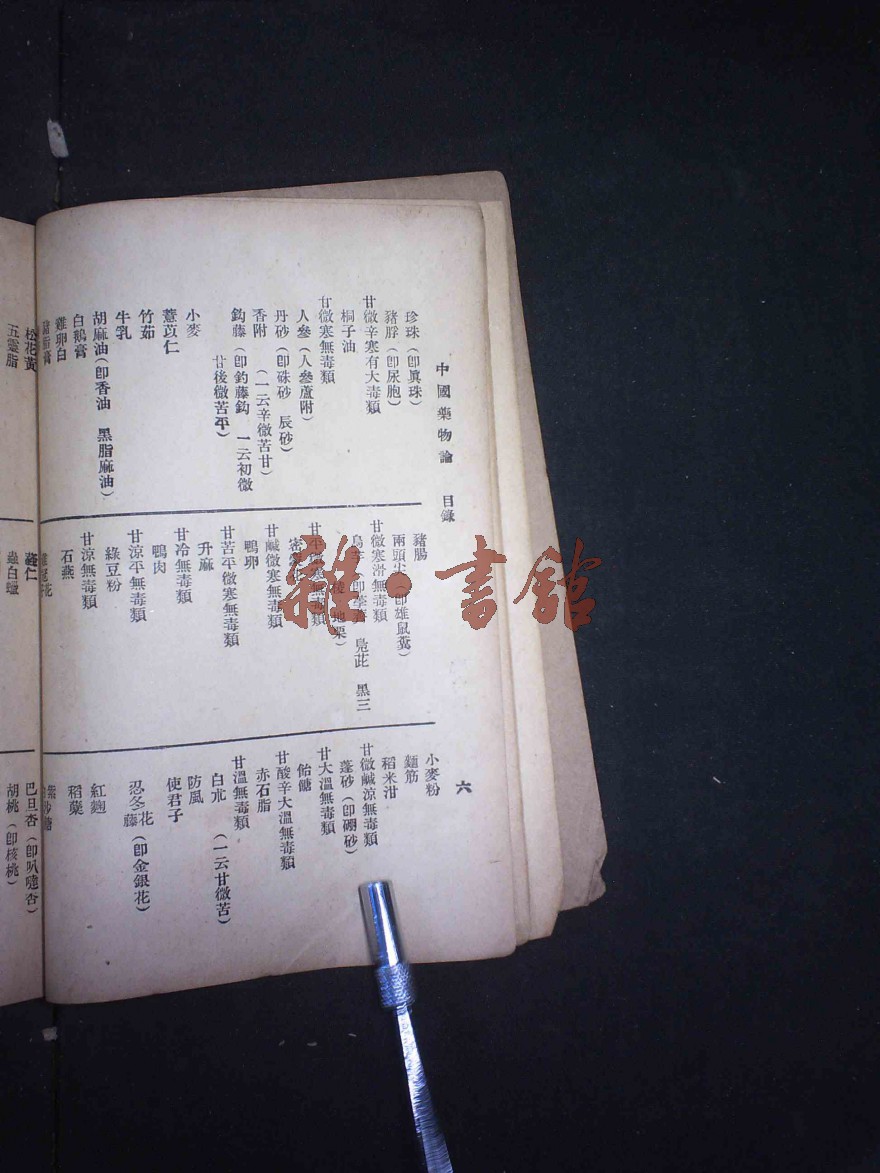 中國藥物論 目錄 六
珍珠（卽眞珠）
豬脬（卽尿胞）
甘微辛寒有大毒類
桐子油
甘微寒無毒類
人參（人參蘆附）
丹砂（卽硃砂 辰砂）
香附（一云辛微苦甘）
鈎藤（卽釣藤鈎 一云初微
甘後微苦平）
小麥
薏苡仁
竹茹
牛乳
胡麻油（卽香油 黑脂麻油）
白鵝膏
雞卵白
豬脂膏
豬腸
兩頭尖（卽雄鼠糞）
甘微寒滑無毒類
烏芋（卽荸薺 鳧茈 黑三
稜 地栗）
甘平微寒無毒類
密蒙花
甘鹹微寒無毒類
鴨卵
甘苦平微寒無毒類
升麻
甘冷無毒類
鴨肉
甘涼平無毒類
綠豆粉
甘涼無毒類
石燕
小麥粉
麵筋
稻米泔
甘微鹹涼無毒類
蓬砂（卽硼砂）
甘大溫無毒類
飴餹
甘酸辛大溫無毒類
赤石脂
甘溫無毒類
白朮（一云甘微苦）
防風
使君子
忍冬花藤（卽金銀花）
紅麴
稻藁
松花黃
五靈脂
蕤仁
蟲白蠟
巴旦杏（卽叭噠杏）
胡桃（卽核桃）
雜·書館